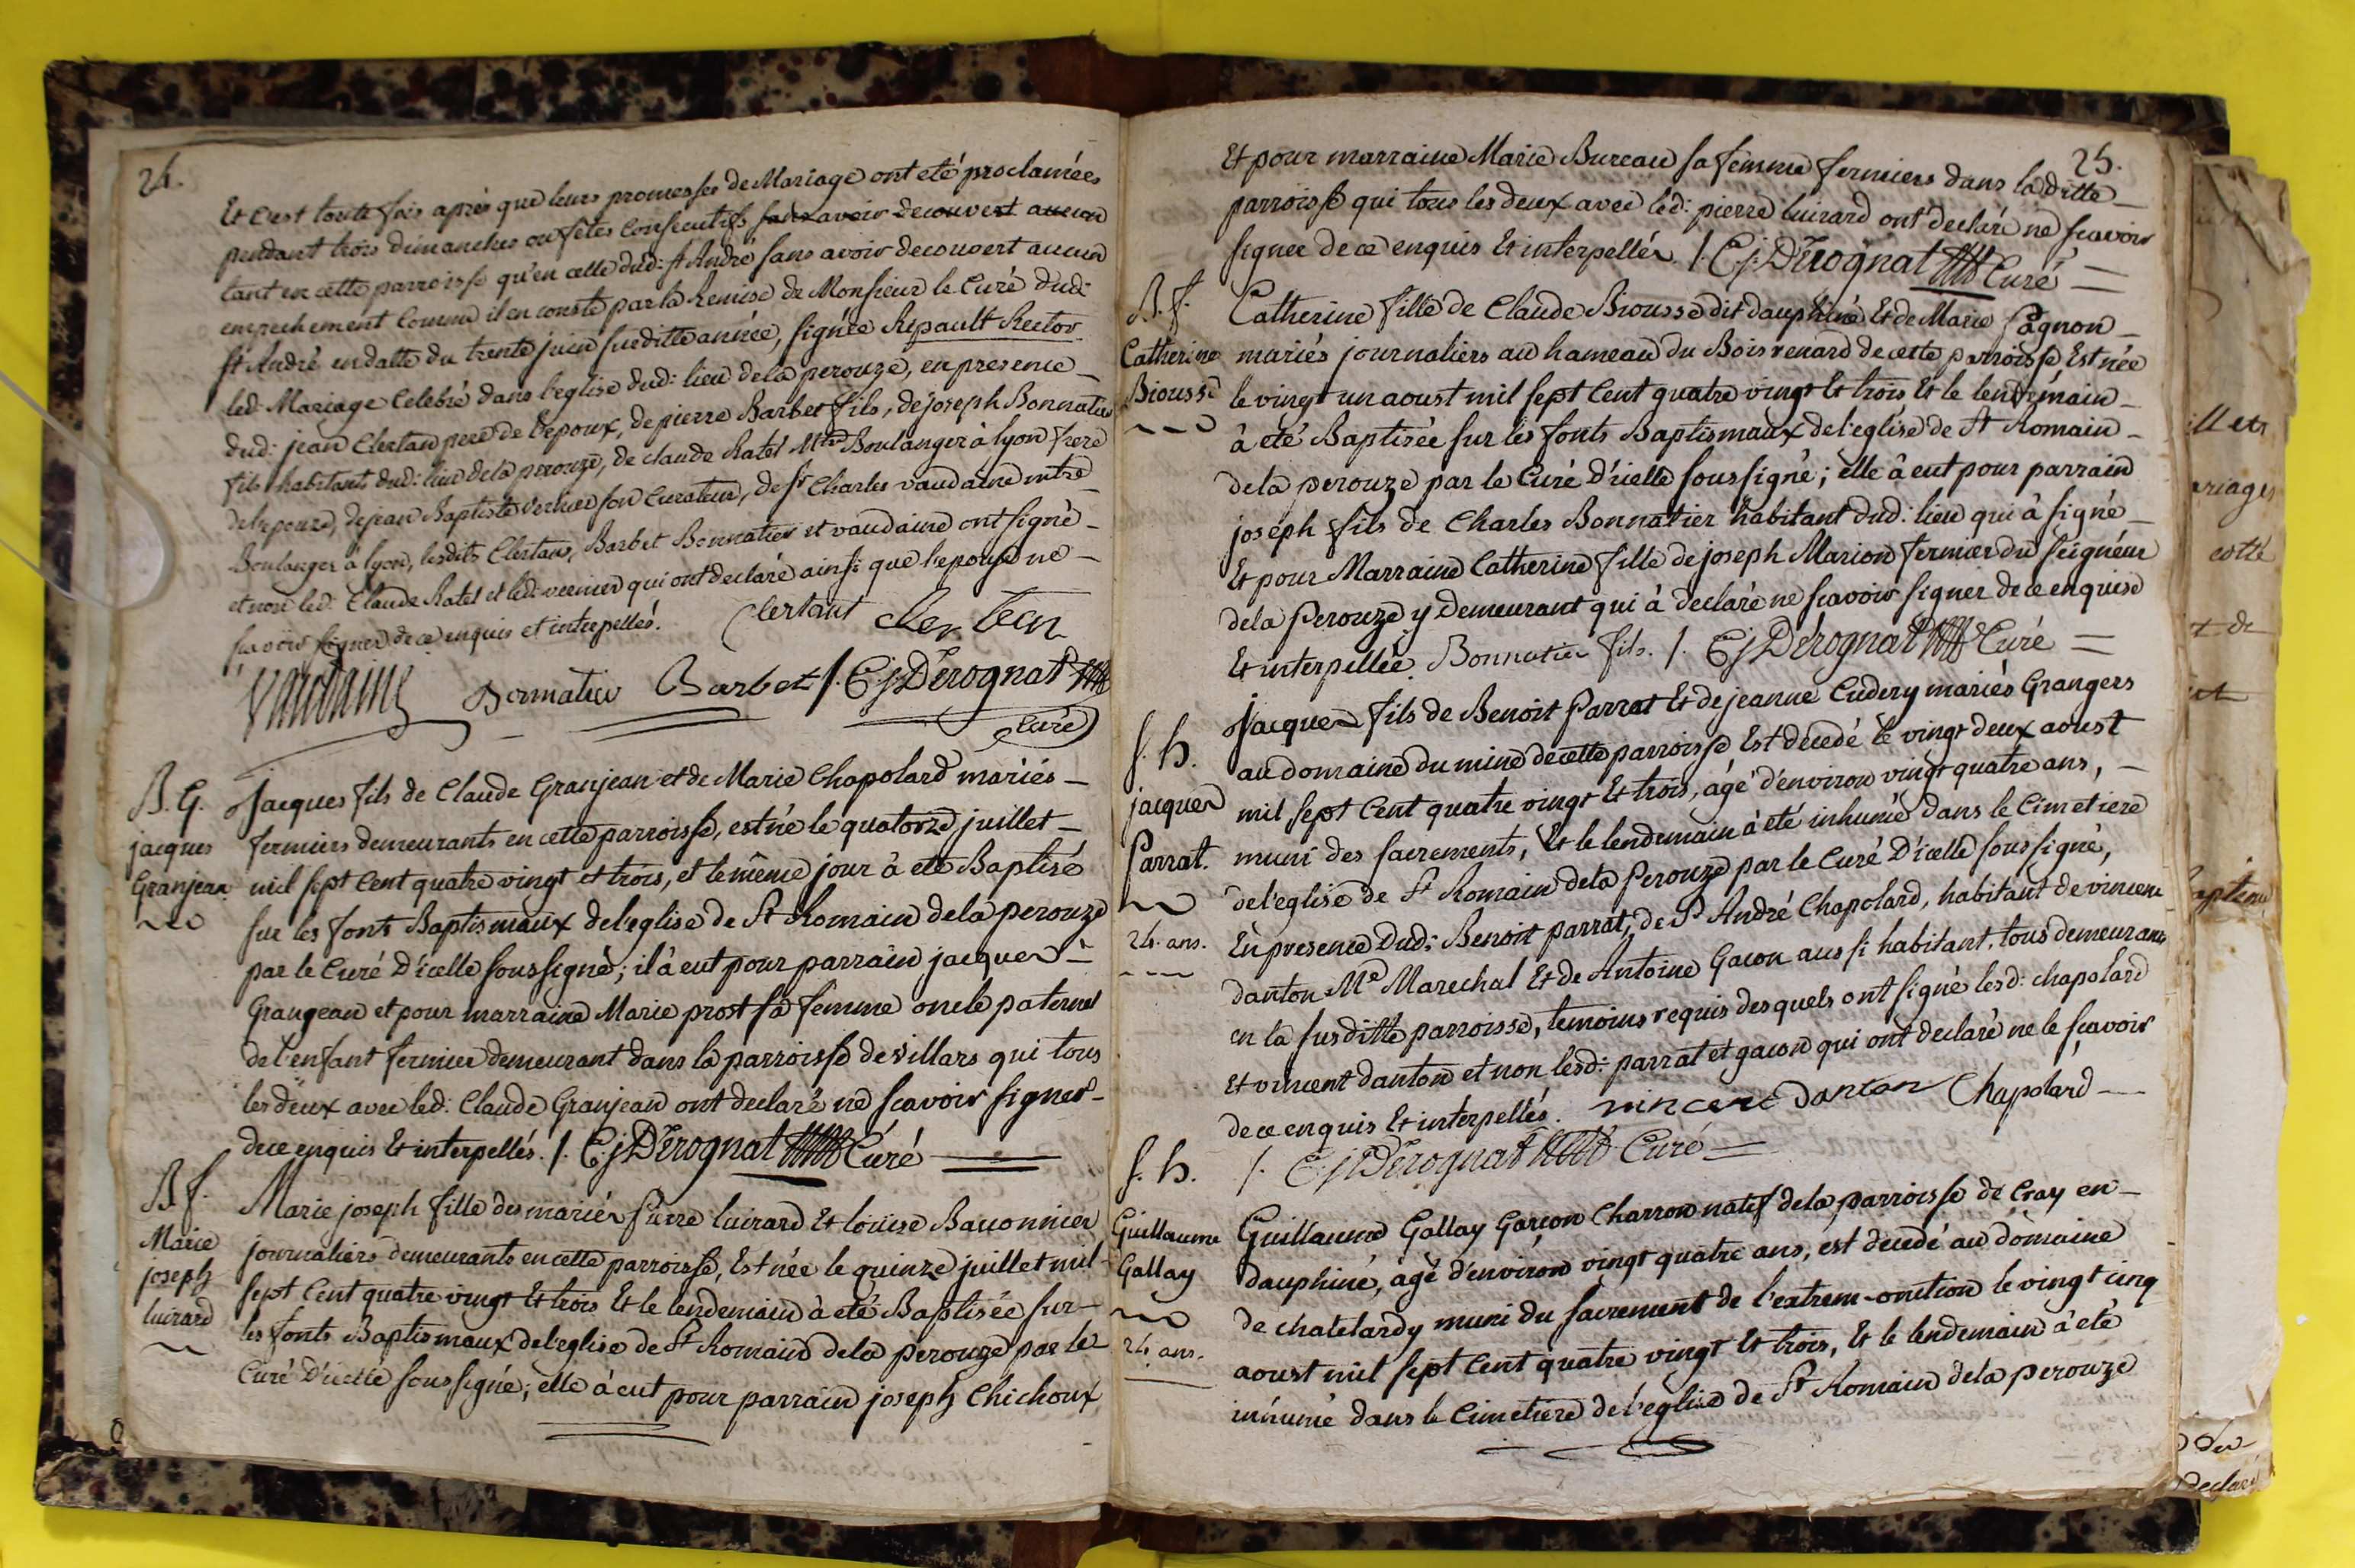 24.
Et C'est toute fois après que leurs promesses de Mariage ont eté proclamées
pendant trois dimanches ou fêtes Consecutifs sans avoir decouvert aucun
tant en cette parroisse qu'en celle dud: st André sans avoir decouvert aucun
empechement Comme il en conste par la Remise de Monsieur le Curé dud:
st André en datte du trente juin susditte année, signée Ripault Rector
led: Mariage Celebré dans l'eglise dud: lieu dela perouze, en presence
dud: jean Clertan pere de l'epoux, de pierre Barbet fils, de joseph Bonnatier
fils habitants dud: lieu dela perouze, de claude Ratel Mtre Boulanger à lyon frere
del'epouze, de jean Baptiste vernier son Curateur, de sr Charles vaudaine mtre
Boulanger à lyon, lesdits Clertan, Barbet Bonnatier et vaudaine ont signé
et non led: Claude Ratel et led: vernier qui ont declaré ainsi que l'epouse ne
savoir signer de ce enquis et interpellés. Clertant Clertan
Vaudaine Bonnatier Barbet /. C:j:Derognat
Curé
B. G. Jacques fils de Claude Granjean et de Marie Chapolard mariés
jacques fermiers demeurants en cette parroisse, est né le quatorze juillet
Granjean mil sept Cent quatre vingt et trois, et le même jour à eté Baptisé
sur les fonts Baptismaux de l'eglise de St Romain dela perouze
par le Curé D'icelle soussigné; il à eut pour parrain jacques
Grangean et pour marraine Marie prost sa femme oncle paternel
de l'enfant fermier demeurant dans la parroisse de villars qui tous
les deux avec led: Claude Granjean ont declaré ne scavoir signer
de ce enquis Et interpellés. /. C:j:Derognat Curé
B. f. Marie joseph fille des mariés Pierre luirard Et loüise Bauonnier
Marie journaliers demeurants en cette parroisse, Est née le quinze juillet mil
joseph sept Cent quatre vingt Et trois Et le lendemain à eté Baptisée sur
luirard les fonts Baptismaux de l'eglise de St Romain dela perouze par le
Curé D'icelle soussigné; elle à eut pour parrain joseph Chichoux
25.
Et pour marraine Marie Bureau sa femme fermiers dans la ditte
parroisse qui tous les deux avec led: pierre luirard ont declaré ne scavoir
signer de ce enquis Et interpellés /. C:j:Derognat Curé
B. f. Catherine fille de Claude Biousse dit dauphiné Et de Marie Pagnon
Catherine mariés journaliers au hameau du Bois renard de cette parroisse Est née
Biousse le vingt un aoust mil sept Cent quatre vingt Et trois Et le lendemain
à eté Baptisée sur les fonts Baptismaux de l'eglise de St Romain
dela perouze par le Curé D'icelle soussigné; elle à eut pour parrain
joseph fils de Charles Bonnatier habitant dud: lieu qui à signé
Et pour Marraine Catherine fille de joseph Marion fermier du seigneur
dela Perouze y demeurant qui à declaré ne scavoir signer de ce enquise
Et interpellée. Bonnatier fils. /. C:j:Derognat Curé
S. h. Jacques fils de Benoit Parrat Et de jeanne Cudery mariés Grangers
au domaine du mine de cette parroisse Est decedé le vingt deux aoust
jacques mil sept Cent quatre vingt Et trois, âgé d'environ vingt quatre ans,
Parrat. muni des sacrements, Et le lendemain à eté inhumé dans le Cimetiere
de l'eglise de St Romain dela Perouze par le Curé D'icelle soussigné,
24. ans. En presence Dud: Benoit parrat, de Sr André Chapolard, habitant de vincent
danton Me Marechal Et de Antoine Gacon aussi habitant. tous demeurants
en la susditte parroisse, temoins requis desquels ont signé lesd: chapolard
Et vincent danton et non lesd: parrat et gacon qui ont declaré ne le scavoir
de ce enquis Et interpellés. vincent danton Chapolard
/. C:j:Derognat Curé
S. h. Guillaume Gallay Garçon Charron natif dela parroisse de Cray en
Guillaume
Gallay dauphiné, âgé d'environ vingt quatre ans, est decedé au domaine
de chatelardy muni du sacrement de l'extrem-onction le vingt cinq
24. ans. aoust mil sept Cent quatre vingt Et trois, Et le lendemain à eté
inhumé dans le Cimetiere de l'eglise de St Romain dela perouze